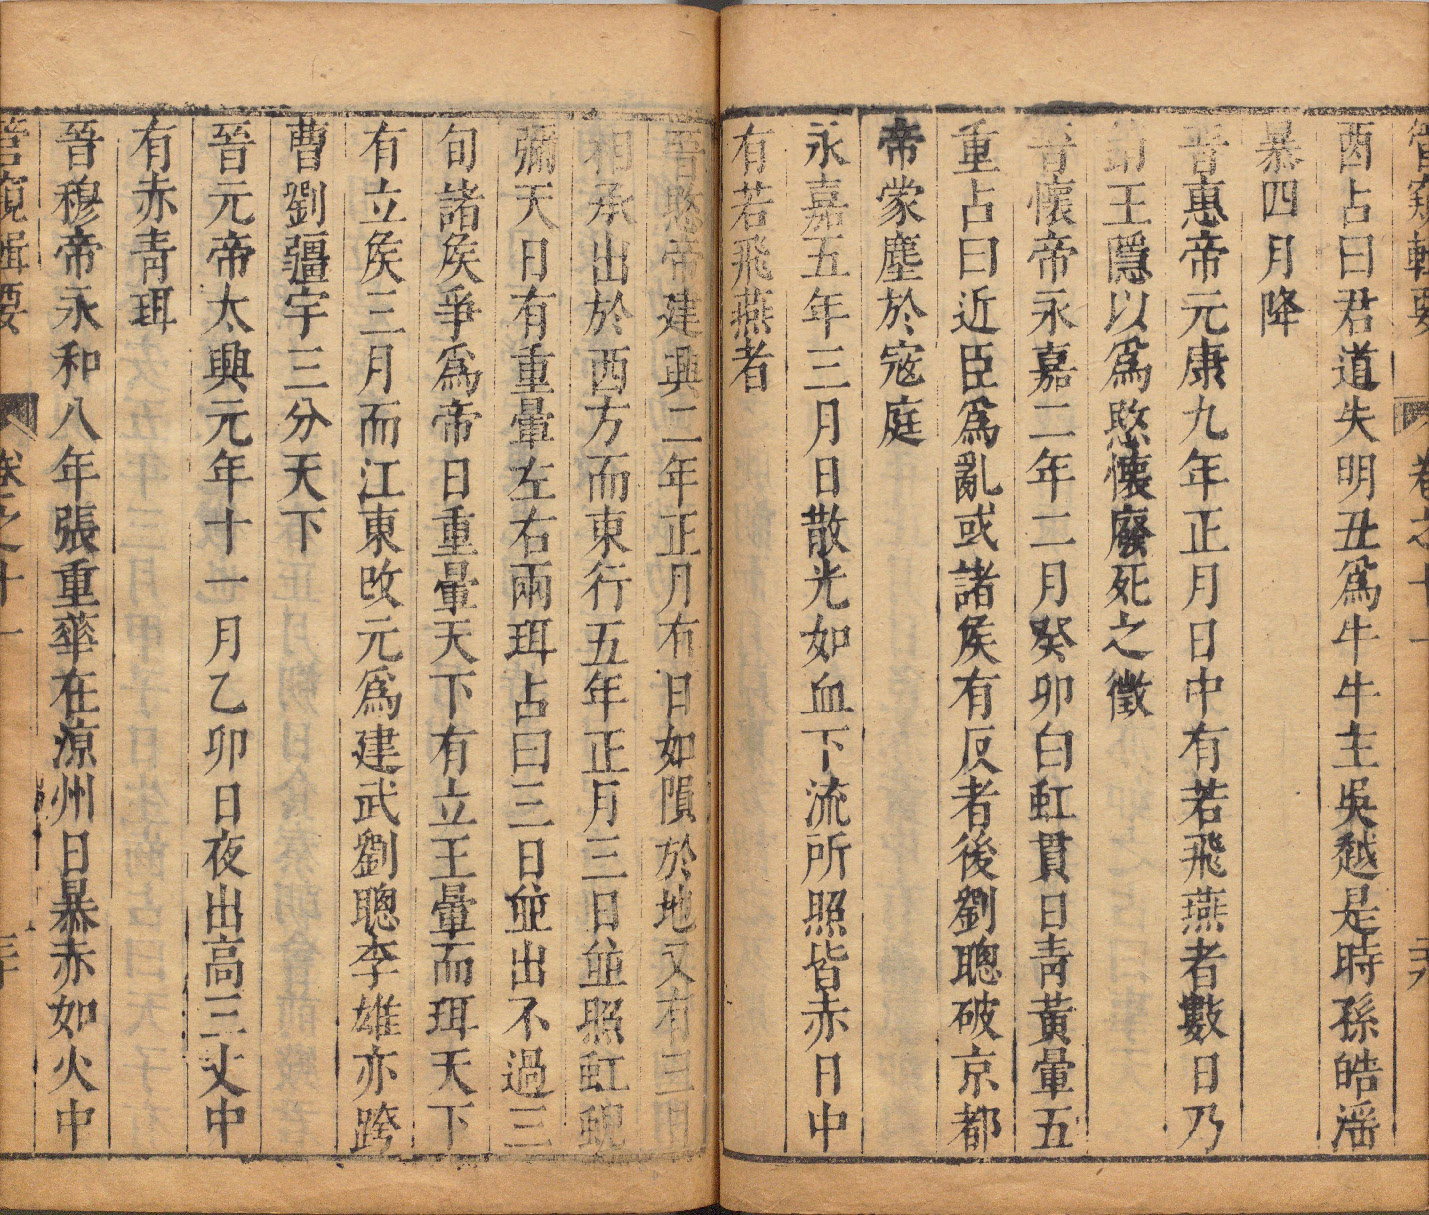 管窺輯要 卷之十一
酉占曰君道失明丑爲牛牛主吳越是時孫皓滛
暴四月降
晋惠帝元康九年正月日中有若飛燕者數日乃
銷王隱以爲愍懷廢死之徵
晋懷帝永嘉二年二月癸卯白虹貫日靑黃暈五
重占曰近臣爲亂或諸侯有反者後劉聰破京都
帝蒙塵於寇庭
永嘉五年三月日散光如血下流所照皆赤日中
有若飛燕者
晋愍帝建興二年正月有日如隕於地又有三日
相承出於西方而東行五年正月三日並照虹蜺
彌天日有重暈左右兩珥占曰三日並出不過三
旬諸侯爭爲帝日重暈天下有立王暈而珥天下
有立侯三月而江東改元爲建武劉聰李雄亦跨
曹劉疆宇三分天下
晉元帝太興元年十一月乙卯日夜出高三丈中
有赤靑珥
晉穆帝永和八年張重華在凉州日暴赤如火中
管窺輯要 卷之十一